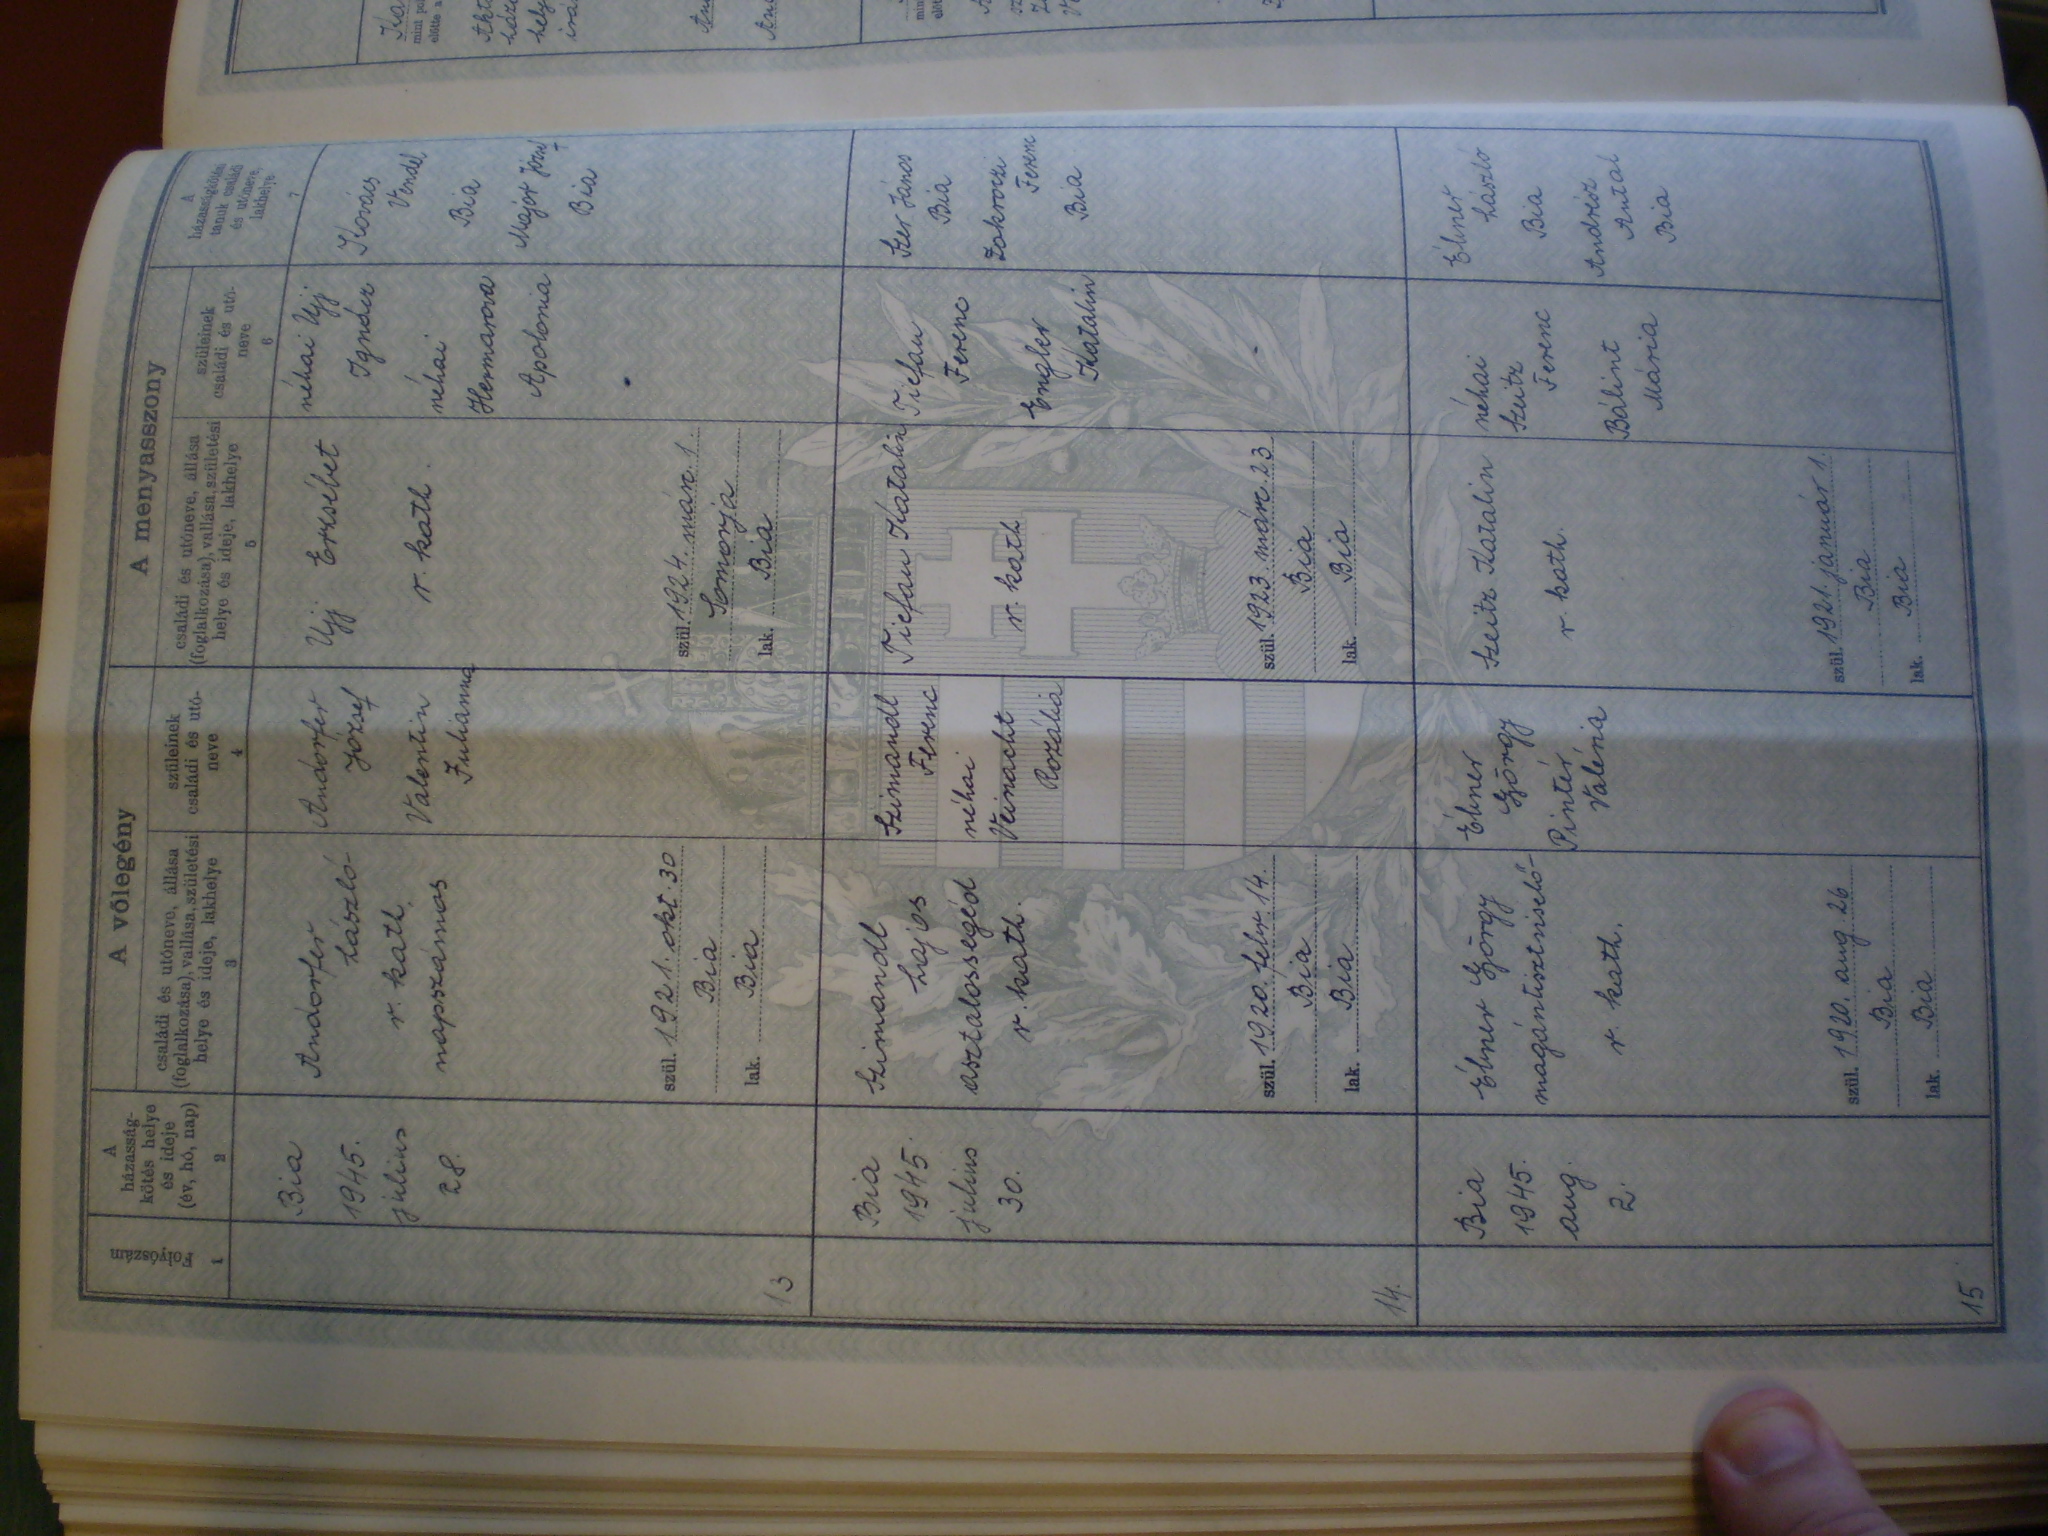 A vőlegény
A menyasszony
Folyószám
A
házasság-
kötés helye
és ideje
(év, hó, nap)
családi és utóneve, állása
(foglalkozása), vallása, születési
helye és ideje, lakhelye
szüleinek
családi és utó-
neve
családi és utóneve, állása
(foglalkozása), vallása, születési
helye és ideje, lakhelye
szüleinek
családi és utó-
neve
A
házasságkötési
tanuk családi
és utóneve,
lakhelye
1
2
3
4
5
6
7
13
Bia
1945.
július
28.
Andorfer
László
r. kath.
napszámos
szül. 1921. okt. 30
Bia
lak. Bia
Andorfer
József
Valentin
Julianna
Ujj Erzsébet
r. kath.
szül. 1924. márc. 1.
Somorja
lak. Bia
néhai Ujj
Ignácz
néhai
Apolonia
Kovács
Vendel
Bia
Major József
Bia
14.
Bia
1945.
július
30.
Szimandl
Lajos
asztalossegéd
r. kath.
szül. 1920. febr. 14.
Bia
lak. Bia
Szimandl
Ferenc
néhai
Veinacht
Rozália
Tiefau Katalin
r. kath
szül. 1923. márc. 23
Bia
lak. Bia
Tiefau
Ferenc
Engler
Katalin
Szer János
Bia
Ferenc
Bia
15
Bia
1945.
aug.
2.
Ébner György
magántisztviselő
r. kath.
szül. 1920. aug. 26
Bia
lak. Bia
Ébner
György
Pintér
Valéria
Szeitz Katalin
r. kath.
szül. 1921. január 1.
Bia
lak. Bia
néhai
Szeitz
Ferenc
Bálint
Mária
Ébner
László
Bia
Andrész
Antal
Bia